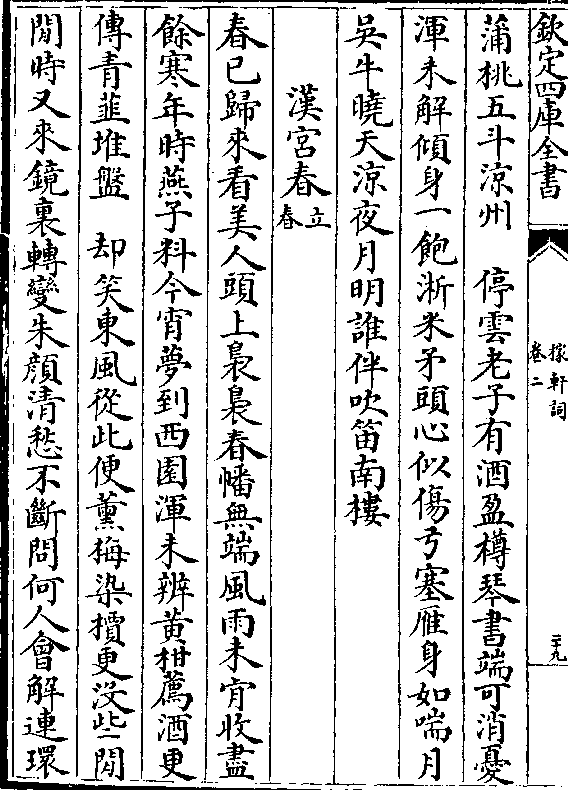 欽定四庫全書
稼軒詞
卷二
二十九
蒲桃五斗涼州　停雲老子有酒盈樽琴書端可消憂
渾未解傾身一飽淅米矛頭心似傷弓塞雁身如喘月
吳牛曉天涼夜月明誰伴吹笛南樓
漢宮春立春
春已歸來看美人頭上裊裊春幡無端風雨未肯收盡
餘寒年時燕子料今宵夢到西園渾未辨黃柑薦酒更
傳青韮堆盤　却笑東風從此便薰梅染櫝更没些閒
閒時又來鏡裏轉變朱顔清愁不斷問何人會解連環